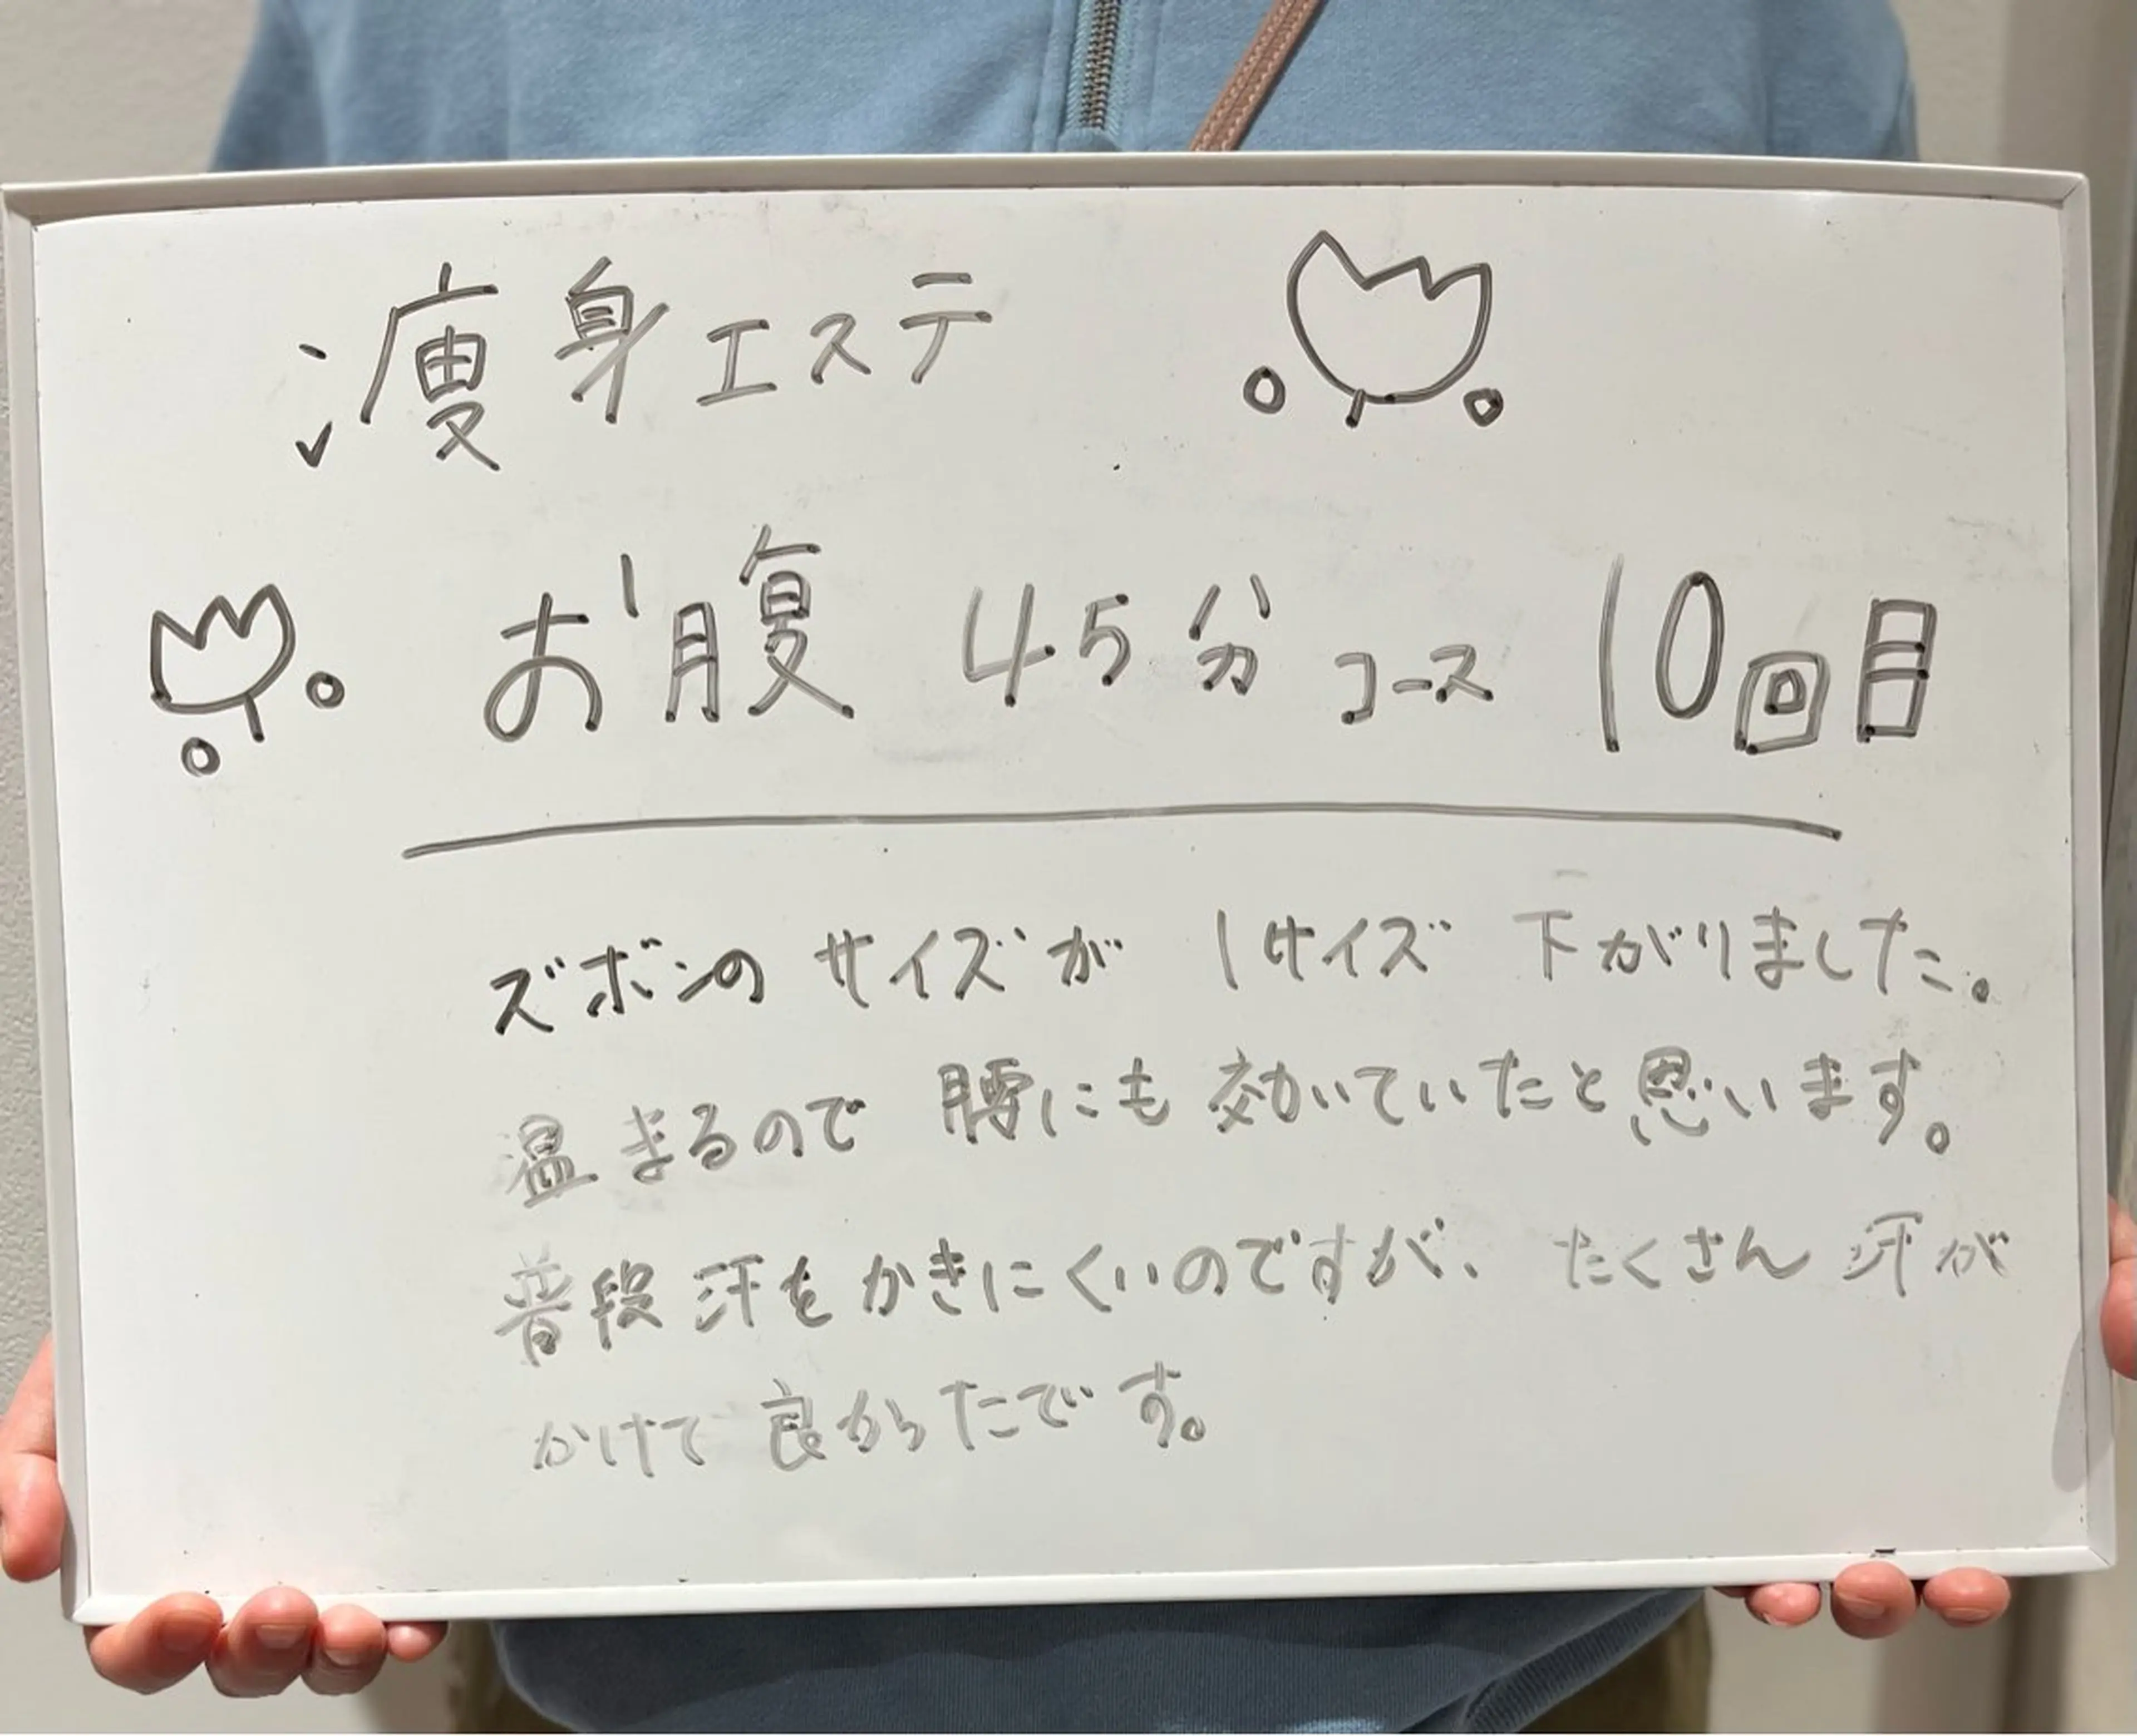 痩身エステ
お腹 45分コース 10回目
ズボンのサイズが 1サイズ 下がりました。
温まるので 腰にも 効いていたと思います。
普段汗をかきにくいのですが、たくさん 汗が
かけて 良かったです。